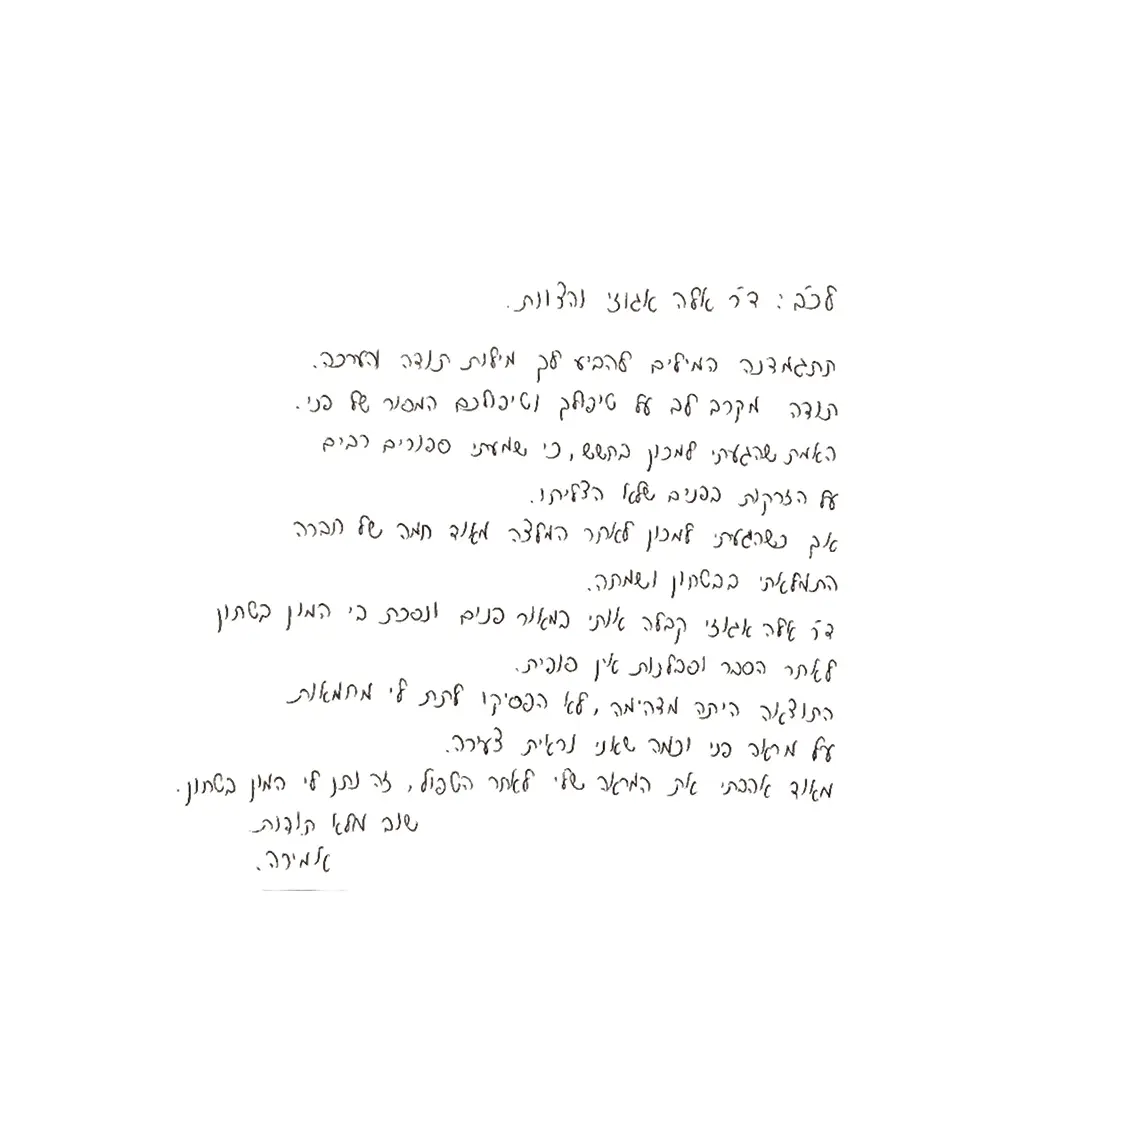 לכ"ב: ד"ר אלה אגוזי והצוות.
תתגמדנה המילים להביע לך מילות תודה והערכה.
תודה מקרב לב על טיפולך וטיפולכם המסור של פני.
האמת שהגעתי למכון בחשש, כי שמעתי ספורים רבים
על הזרקות בפנים שלא הצליחו.
אך כשהגעתי למכון לאחר המלצה מאוד חמה של חברה
התמלאתי בבטחון ושמחה.
ד"ר אלה אגוזי קבלה אותי במאור פנים ונסכת בי המון בטחון
לאחר הסבר וסבלנות אין סופית.
התוצאה היתה מדהימה, לא הפסיקו לתת לי מחמאות
על מראה פני וכמה שאני נראית צעירה.
מאוד אהבתי את המראה שלי לאחר הטפול, זה נתן לי המון בטחון.
שוב מלא תודות
אלמירה.